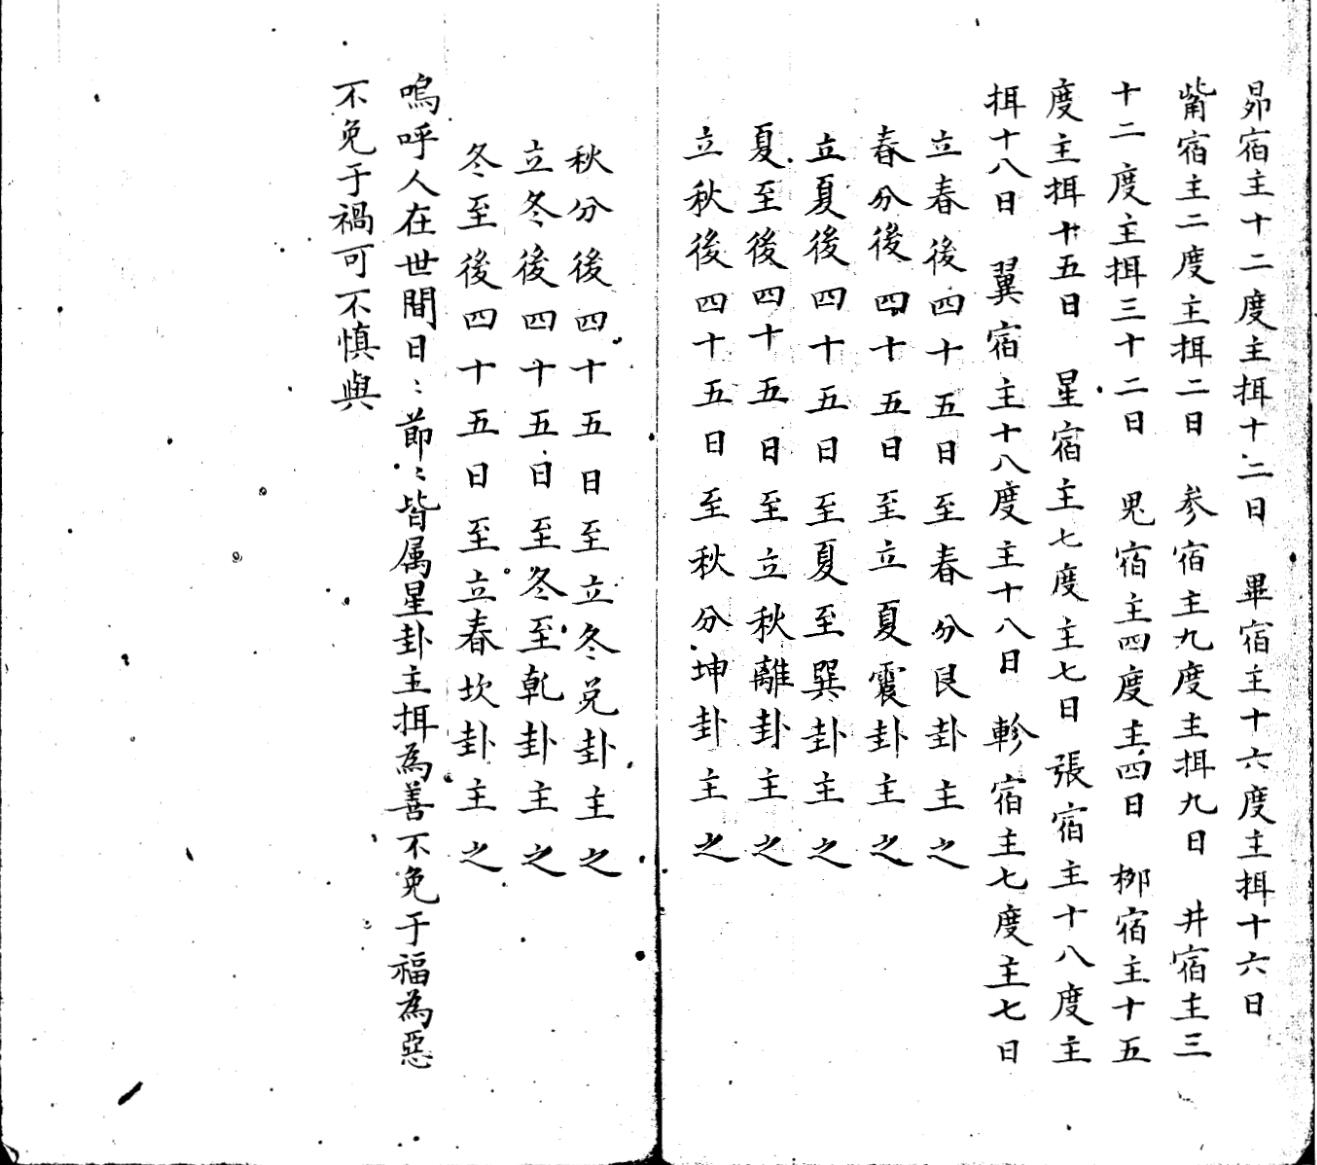 昴宿主十二度主揖十二日　畢宿主十六度主揖十六日
觜宿主二度主揖二日　参宿主九度主揖九日　井宿主三
十二度主揖三十二日　鬼宿主四度主四日　柳宿主十五
度主揖十五日　星宿主七度主七日張宿主十八度主
揖十八日　翼宿主十八度主十八日　軫宿主七度主七日
立春後四十五日至春分艮卦主之
春分後四十五日至立夏震卦主之
立夏後四十五日至夏至巽卦主之
夏至後四十五日至立秋離卦主之
立秋後四十五日至秋分坤卦主之
秋分後四十五日至立冬兑卦主之
立冬後四十五日至冬至乹卦主之
冬至後四十五日至立春坎卦主之
嗚呼人在世間日〻節〻皆属星卦主揖為善不免于福為惡
不免于禍可不慎與